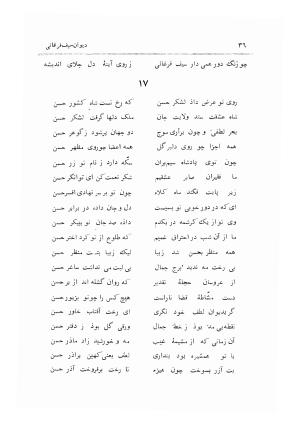 ۳۶ دیوان سیف فرغانی
چو زنگ دور همی دار سیف فرغانی ز روی آینهٔ دل جلای اندیشه
۱۷
روی تو عرض داد لشکر حسن که رخ تست شاه کشور حسن
شاه عشقت ستد ولایت جان ملک دلها گرفت لشکر حسن
بحر لطفی و چون برآری موج دو جهان پرشود ز گوهر حسن
همه اجزا چو روی دلبر گل همه اعضا چو روی مظهر حسن
چون توی پادشاه سیم بران سکه دارد ز نام تو زر حسن
ما فقیران صابر عشقیم شکر نعمت کن ای توانگر حسن
زیر پایت فگند ماه کلاه چون تو بر سر نهادی افسر حسن
ای که در دور خوبی تو بسیست دل و جان داده در برابر حسن
وی تو از یک کرشمه در یکدم داده صد جان تو بپیکر حسن
ما از آن شب در احتراق غمیم که طلوع از تو کرد اختر حسن
همه منظر بحسن شد زیبا لیک زیبا بتست منظر حسن
بی رخت مه ندید برج جمال بی لبت می نداشت ساغر حسن
از عروسان حجلهٔ تقدیر که روان گشته اند از بر حسن
دست مشاطهٔ قضا ناراست هیچ کس را چو تو بزیور حسن
گر بدیوان لطف خود نگری ای رخت آفتاب خاور حسن
نقطه یی مه بود ز خط جمال ورقی گل بود ز دفتر حسن
آن زمانی که از مشیمهٔ غیب مه و خورشید زاد مادر حسن
با تو همشیره بود پنداری لطف یعنی کهین برادر حسن
بت آزر بسوخت چون هیزم تا رخت برفروخت آذر حسن